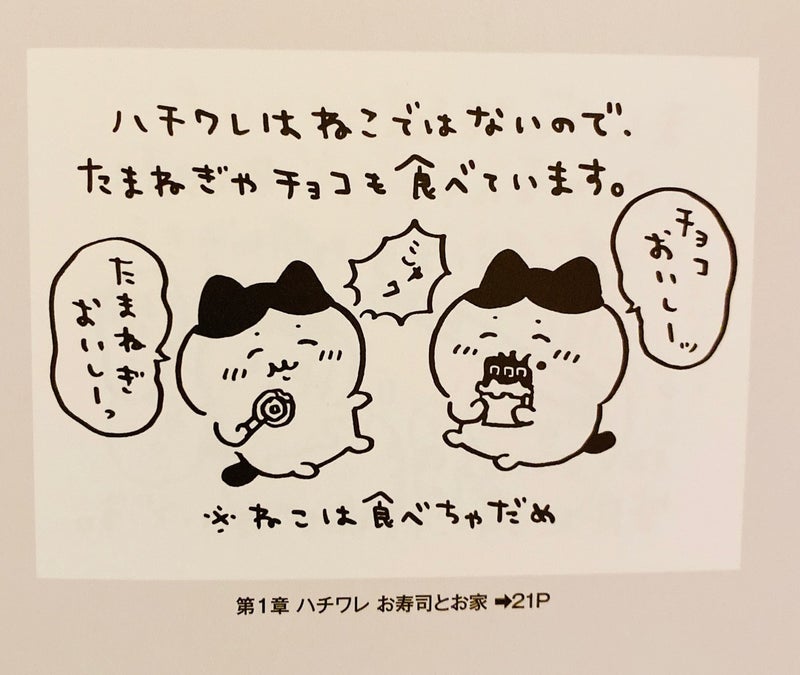 ハチワレはねこではないので、
たまねぎやチョコも食べています。
チョコ
おいしーッ
じゃ
コ
たまねぎ
おいしーっ
※ねこは食べちゃだめ
第1章 ハチワレ お寿司とお家 ➡21P